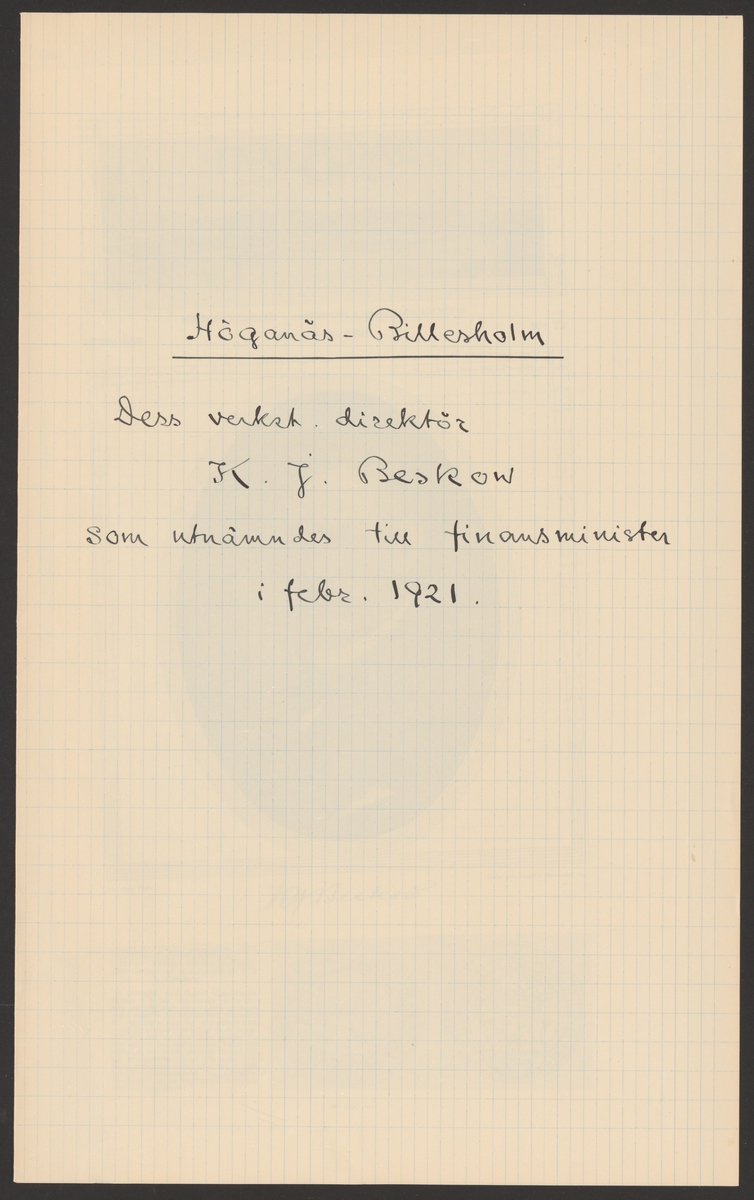 Höganäs - Billesholm
Dess verkst. direktör
K. J. Beskow
som utnämndes till finansminister
i febr. 1921.